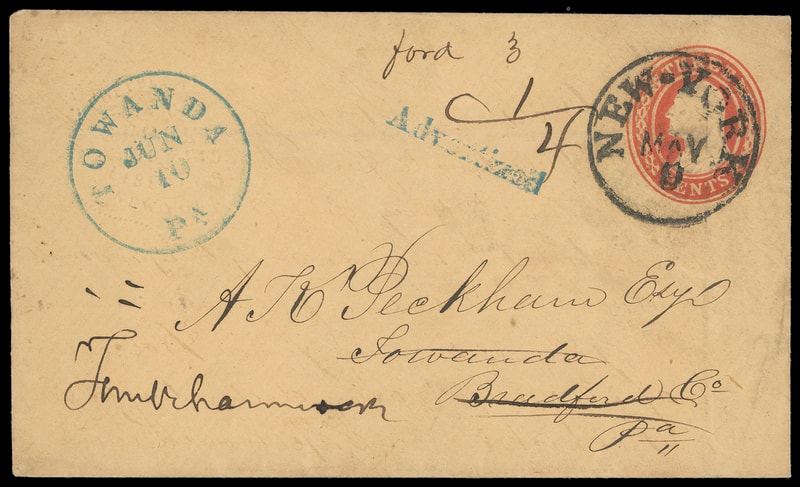 ford 3
1/4
Advertised
TOWANDA
JUN
10
PA
NEW-YORK
MAY
CENTS
A K Peckham Esq
Towanda
Bradford Co
Pa